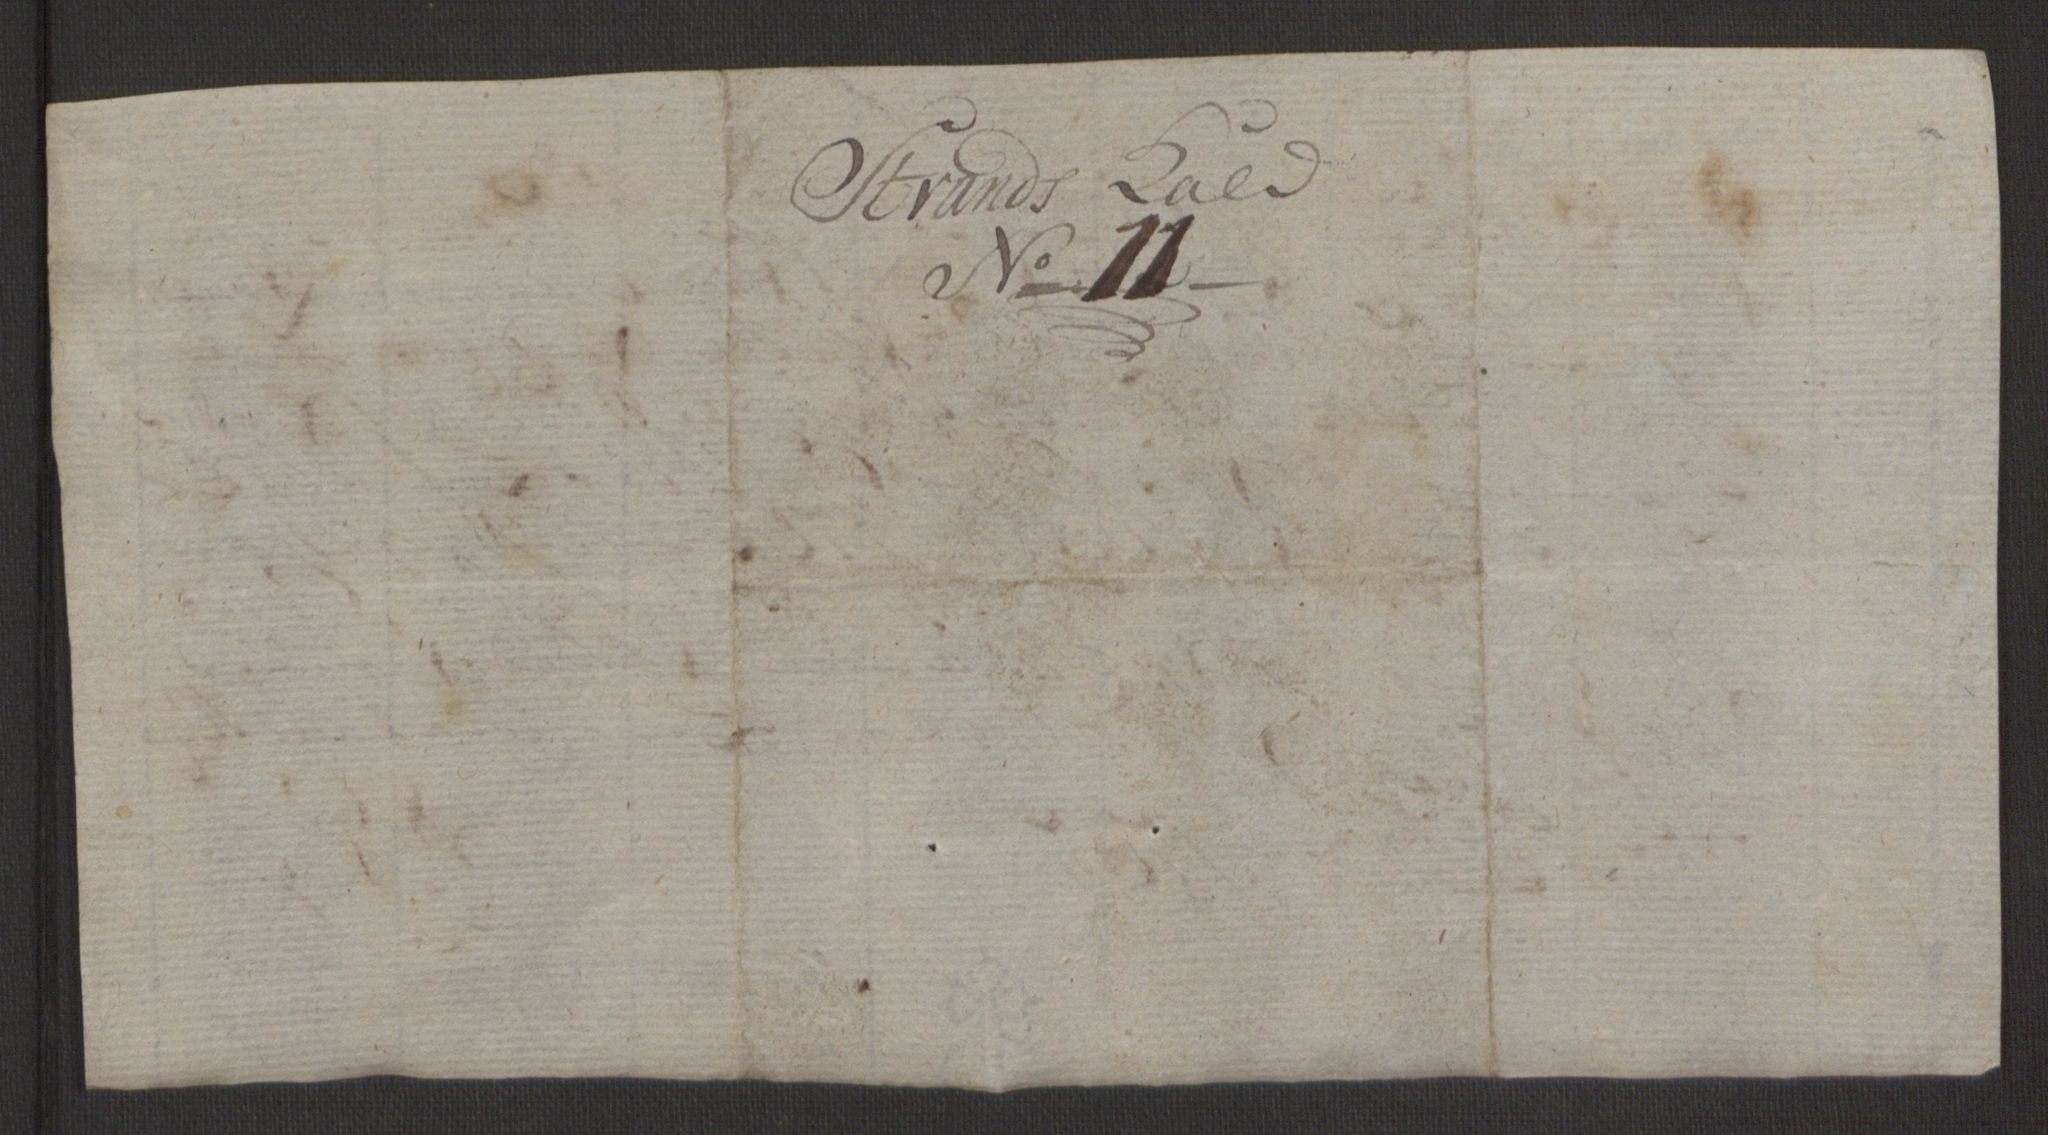 Strands Kald
No 11